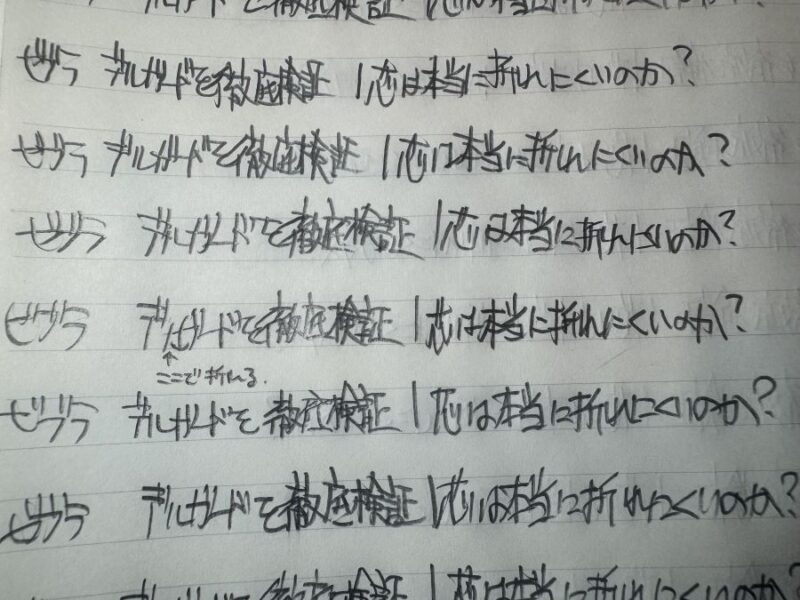 を徹底検証 | 芯は本当に折れにくいのか?
ゼブラ デルガードを徹底検証 | 芯は本当に折れにくいのか?
ゼブラ デルガードを徹底検証 | 芯は本当に折れにくいのか?
ゼブラ デルガードを徹底検証 | 芯は本当に折れにくいのか?
ゼブラ デルガードを徹底検証 | 芯は本当に折れにくいのか?
↑
ここで折れる.
ゼブラ デルガードを徹底検証 | 芯は本当に折れにくいのか?
ゼブラ デルガードを徹底検証 | 芯は本当に折れにくいのか?
ゼブラ デルガードを徹底検証 | 芯は本当に折れにくいのか?